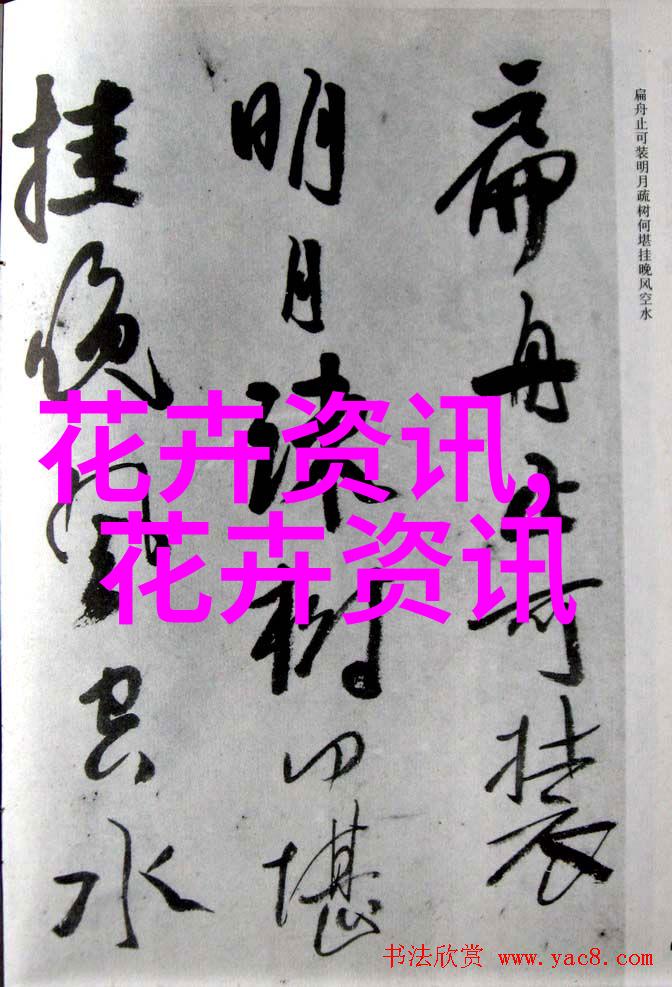 扁舟止可装
明月疏树何堪
挂晚风空水
扁舟止可装明月疏树何堪挂晚风空水
花卉资讯,
花卉资讯
书法欣赏 www.yac8.com